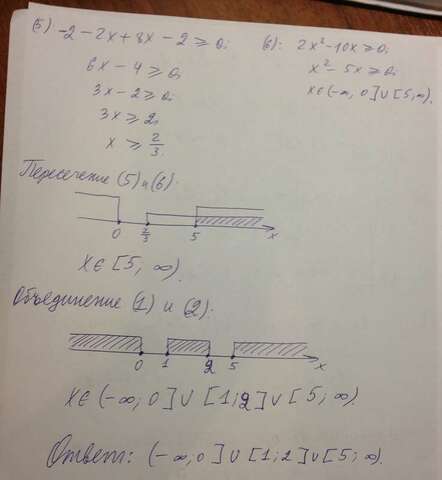 (5) -2 - 2x + 8x - 2 ⩾ 0;
6x - 4 ⩾ 0;
3x - 2 ⩾ 0;
3x ⩾ 2;
x ⩾ 2/3.
(6): 2x² - 10x ⩾ 0;
x² - 5x ⩾ 0;
x∈(-∞, 0]∪[5, ∞).
Пересечение (5) и (6):
0 2/3 5 x
x∈[5, ∞).
Объединение (1) и (2):
0 1 2 5 x
x∈(-∞; 0]∪[1; 2]∪[5; ∞).
Ответ: (-∞, 0]∪[1; 2]∪[5; ∞).